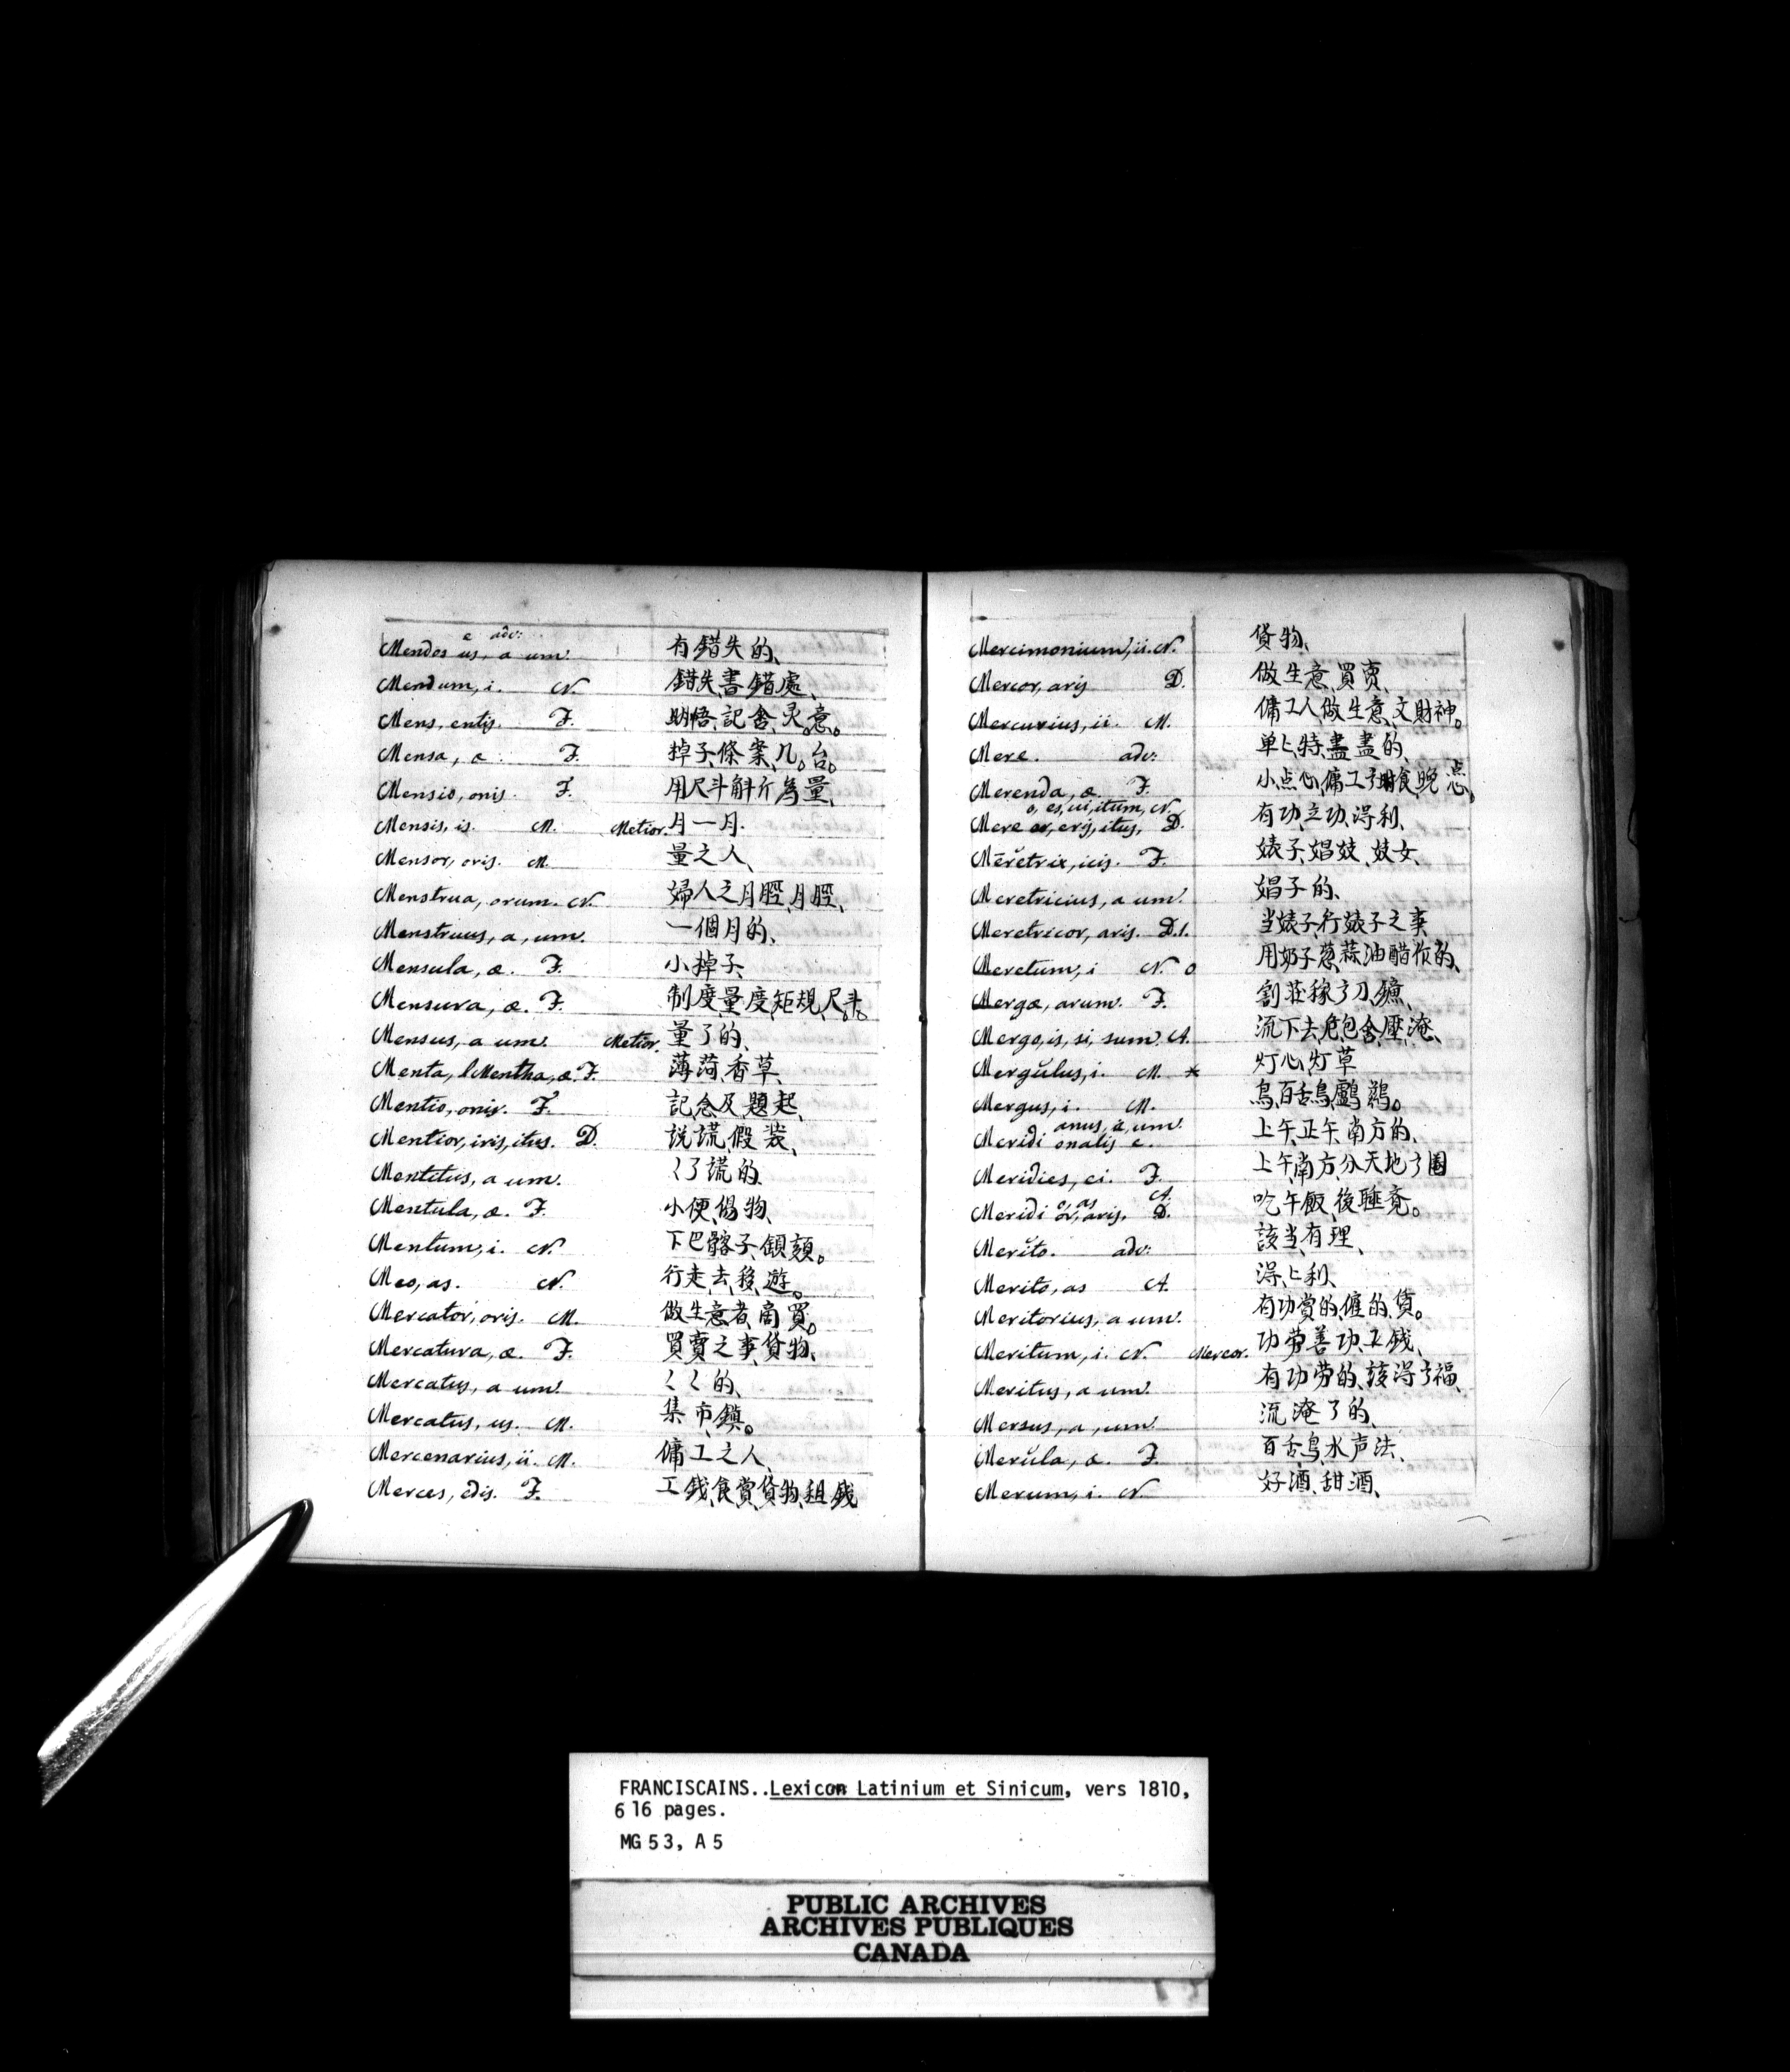 e adv:
Mendos us, a um. 有錯失的、
Mendum, i. N. 錯失、書錯處、
Mens, entis. F. 明悟、記含、灵。意。
Mensa, æ. F. 掉子、條案、几。台。
Mensio, onis. F. 用尺斗斛斤為量、
Mensis, is. M. 月一月.
Mensor, oris. M. Metior. 量之人、
Menstrua, orum. N. 婦人之月脛、月脛、
Menstruus, a, um. 一個月的、
Mensula, æ. F. 小掉子、
Mensura, æ. F. 制度、量度、矩規、尺。斗。
Mensus, a um. Metior. 量了的、
Menta, l Mentha, æ. F. 薄荷、香草、
Mentio, onis. F. 記念及、題起、
Mentior, iris, itus. D. 説謊、假装、
Mentitus, a um. 〻了謊的、
Mentula, æ. F. 小便、陽物、
Mentum, i. N. 下巴、髂子、頷頦。
Meo, as. N. 行走、去、移、遊。
Mercator, oris. M. 做生意者、商買。
Mercatura, æ. F. 買賣之事、貨物、
Mercatus, a um. 〻〻的、
Mercatus, us. M. 集、市、鎮。
Mercenarius, ii. M. 傭工之人、
Merces, edis. F. 工錢、食、賞、貨物、租錢
Mercimonium, ii. N. 貨物、
Mercor, aris D. 做生意、買賣、
Mercurius, ii. M. 傭工人、做生意、文財神。
Mere. adv: 単〻、特、盡盡的、
Merenda, æ. F. 小点心、傭工了食、晚点心、
o, es, ui, itum, N.
Mere or, eris, itus, D. 有功、立功、得利、
Merĕtrix, icis. F. 婊子、娼妓、妓女、
Meretricius, a um. 娼子的、
Meretricor, aris. D.1. 当婊子、行婊子之事
Meretum, i N. o 用奶子葱蒜油醋作的、
Mergæ, arum. F. 割莊稼了刀、鐮、
Mergo, is, si, sum. A. 流下去、包含、壓、淹、
Mergŭlus, i. M. * 灯心、灯草
Mergus, i. M. 鳥、百舌鳥、鸕鶿。
anus, a, um.
Meridi onalis e. 上午、正午、南方的、
Meridies, ei. F. 上午、南方、分天地了圈
o, as A.
Meridi or, aris. D. 吃午飯、後睡竟。
Merĭto. adv: 該当、有理、
Merito, as A. 得〻利、
Meritorius, a um. 有功賞的、僱的、賃。
Meritum, i. N. Mereor. 功劳、善功、工錢、
Meritus, a um. 有功劳的、該得了福、
Mersus, a, um. 流淹了的、
Merŭla, æ. F. 百舌鳥、水声法、
Merum, i. N. 好酒、甜酒、
FRANCISCAINS..Lexicon Latinium et Sinicum, vers 1810,
616 pages.
MG 53, A 5
PUBLIC ARCHIVES
ARCHIVES PUBLIQUES
CANADA